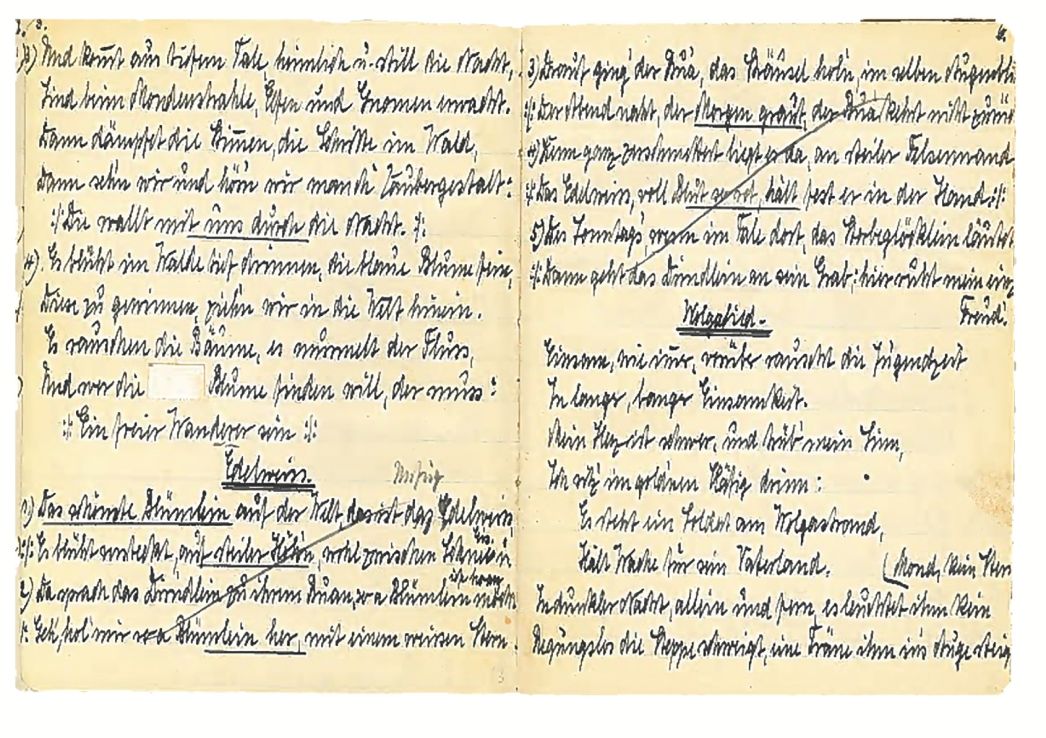 3.
3) Und kommt aus tiefem Tale, heimlich u. still die Nacht,
Sind beim Mondenstrahle, Elfen und Gnomen erwacht.
Dann dämpfet die Stimmen, die Schritte im Wald,
Dann seh'n wir und hör'n wir manch' Zaubergestalt:
:/: Die wallt mit uns durch die Nacht. :/:
4) Es blüht im Walde tief drinnen, die blaue Blume fein,
Diese zu gewinnen, zieh'n wir in die Welt hinein.
Es rauschen die Bäume, es murmelt der Fluss,
Und wer die Blume finden will, der muss:
:/: Ein freier Wanderer sein :/:
Edelweiss. Unfug
1) Das schönste Blümlein auf der Welt, das ist das Edelweiss,
:/: Es blüht versteckt, auf steiler Höh'n, wohl zwischen Schnee u.
Eis.
2) Da sprach das Dirndlein zu ihrem Buan, so a Blümlein möcht
ich hoam
/: Geh, hol' mir so a Blümlein her, mit einem weissen Stern.
4.
3) Drauf ging' der Bua, das Sträusel hol'n, im selben Augenbli
:/: Der Abend naht, der Morgen graut, der Bua kehrt nicht zurü
4) Denn ganz zerschmettert liegt er da, an steiler Felsenwand
:/: Das Edelweiss, voll Blut so rot, hält fest er in der Hand :/:
5) Des Sonntag's wenn im Tale dort, das Sterbeglöcklein läutet
:/: Dann geht das Dirndlein an sein Grab; hier ruht mein einz
Freud!
Wolgalied.
Einsam, wie immer, vorüber rauscht die Jugendzeit
In langer, banger Einsamkeit.
Mein Herz ist schwer, und trüb' mein Sinn,
Ich sitz' im gold'nen Käfig drinn:
Es steht ein Soldat am Wolgastrand,
Hält Wache für sein Vaterland.
(Mond, kein Stern
In dunkler Nacht, allein und fern, es leuchtet ihm kein
Regungslos die Steppe schweigt, eine Träne ihm in's Auge steig